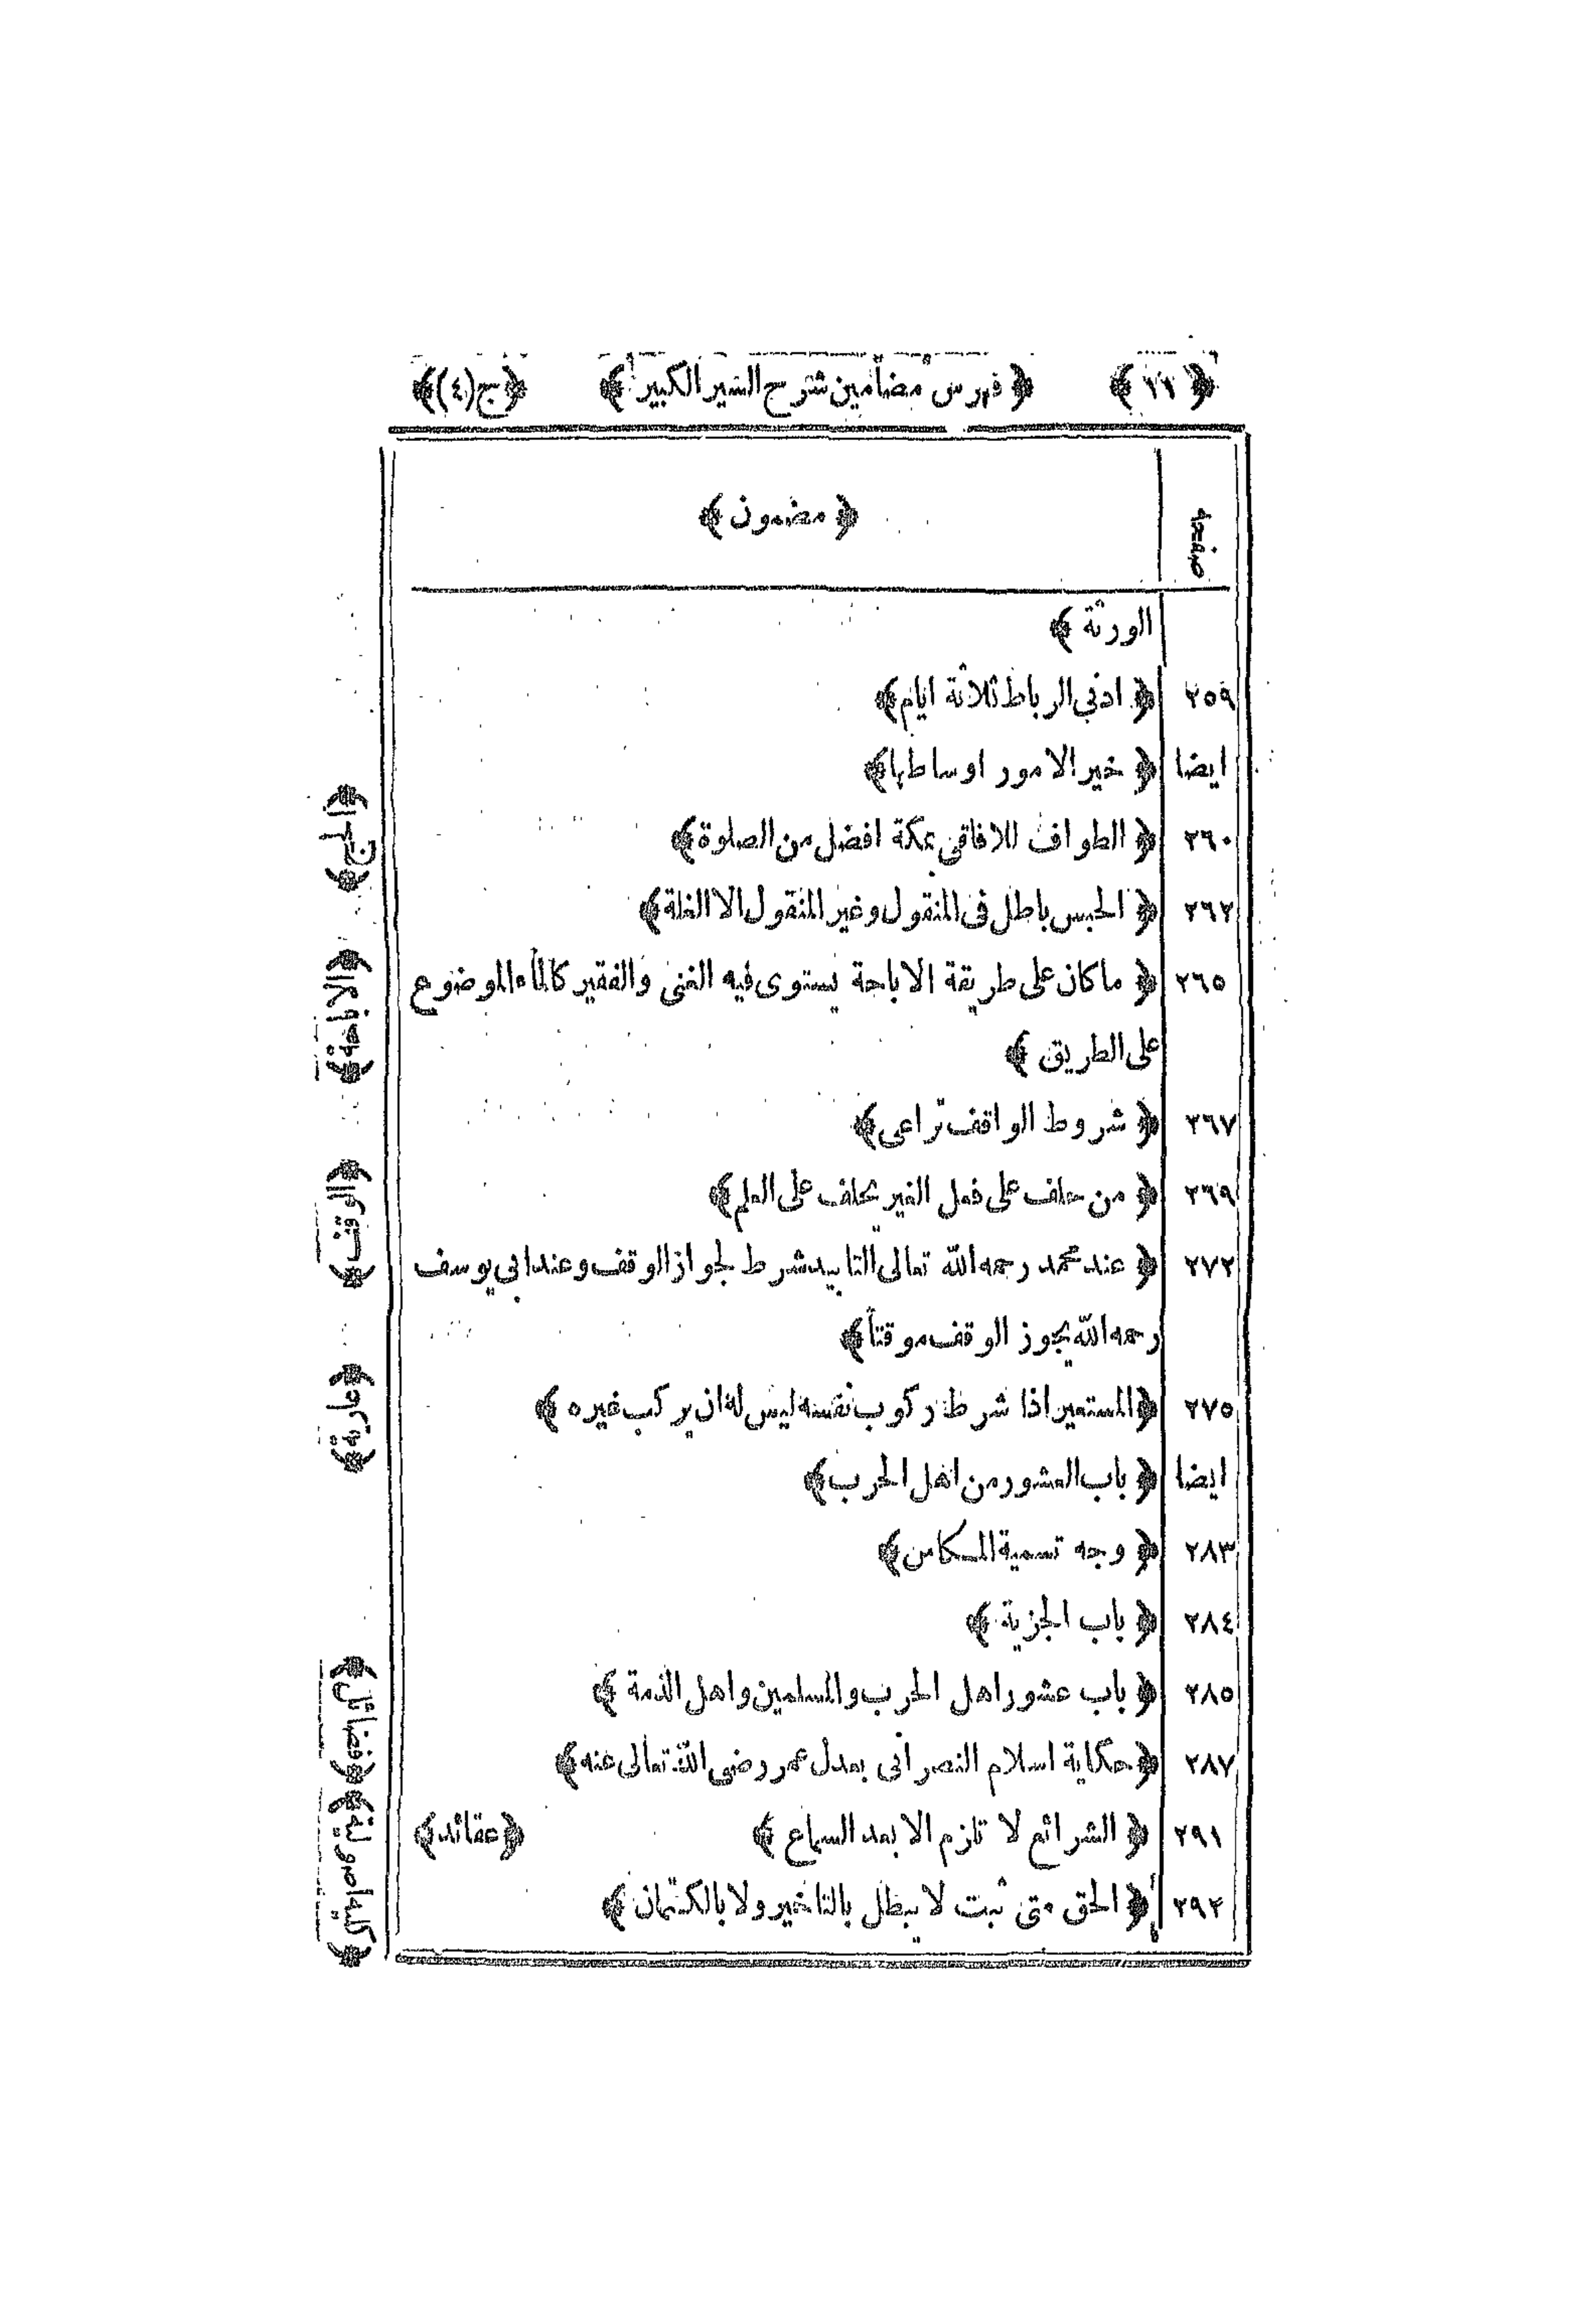 ﴿ ١١ ﴾ ﴿ فهرس مضامين شرح السير الكبير ﴾ ﴿ج(٤)﴾
صفحه ﴿ مضمون ﴾
الورثة ﴾
٢٥٩ ﴿ ادنى الرباط ثلاثة ايام﴾
ايضا ﴿ خير الامور اوساطها﴾
٢٦٠ ﴿ الطواف للافاقى بمكة افضل من الصلوة﴾ ﴿الحج﴾
٢٦٢ ﴿ الحبس باطل فى المنقول وغير المنقول الا الغلة﴾
٢٦٥ ﴿ ماكان على طريقة الاباحة يستوى فيه الغنى والفقير كالماء الموضوع ﴿الاباحة﴾
على الطريق ﴾
٢٦٧ ﴿ شروط الواقف تراعى﴾
٢٦٩ ﴿ من حلف على فعل الغير يحلف على العلم﴾ ﴿الوقف﴾
٢٧٢ ﴿ عند محمد رحمه الله تعالى التابيد شرط لجواز الوقف وعند ابى يوسف
رحمه الله يجوز الوقف موقتاً﴾
٢٧٥ ﴿المستعير اذا شرط ركوب نفسه ليس له ان يركب غيره ﴾
ايضا ﴿ باب العشور من اهل الحرب﴾
٢٨٣ ﴿ وجه تسمية المكاس﴾
٢٨٤ ﴿ باب الجزية ﴾
٢٨٥ ﴿ باب عشور اهل الحرب والمسلمين واهل الذمة ﴾ ﴿فضائل﴾
٢٨٧ ﴿حكاية اسلام النصرانى بعدل عمر رضى الله تعالى عنه﴾
٢٩١ ﴿ الشرائع لا تلزم الا بعد السماع ﴾ ﴿عقائد﴾
٢٩٢ ﴿ الحق متى ثبت لا يبطل بالتاخير ولا بالكتمان ﴾ ﴿كلية اصولية﴾